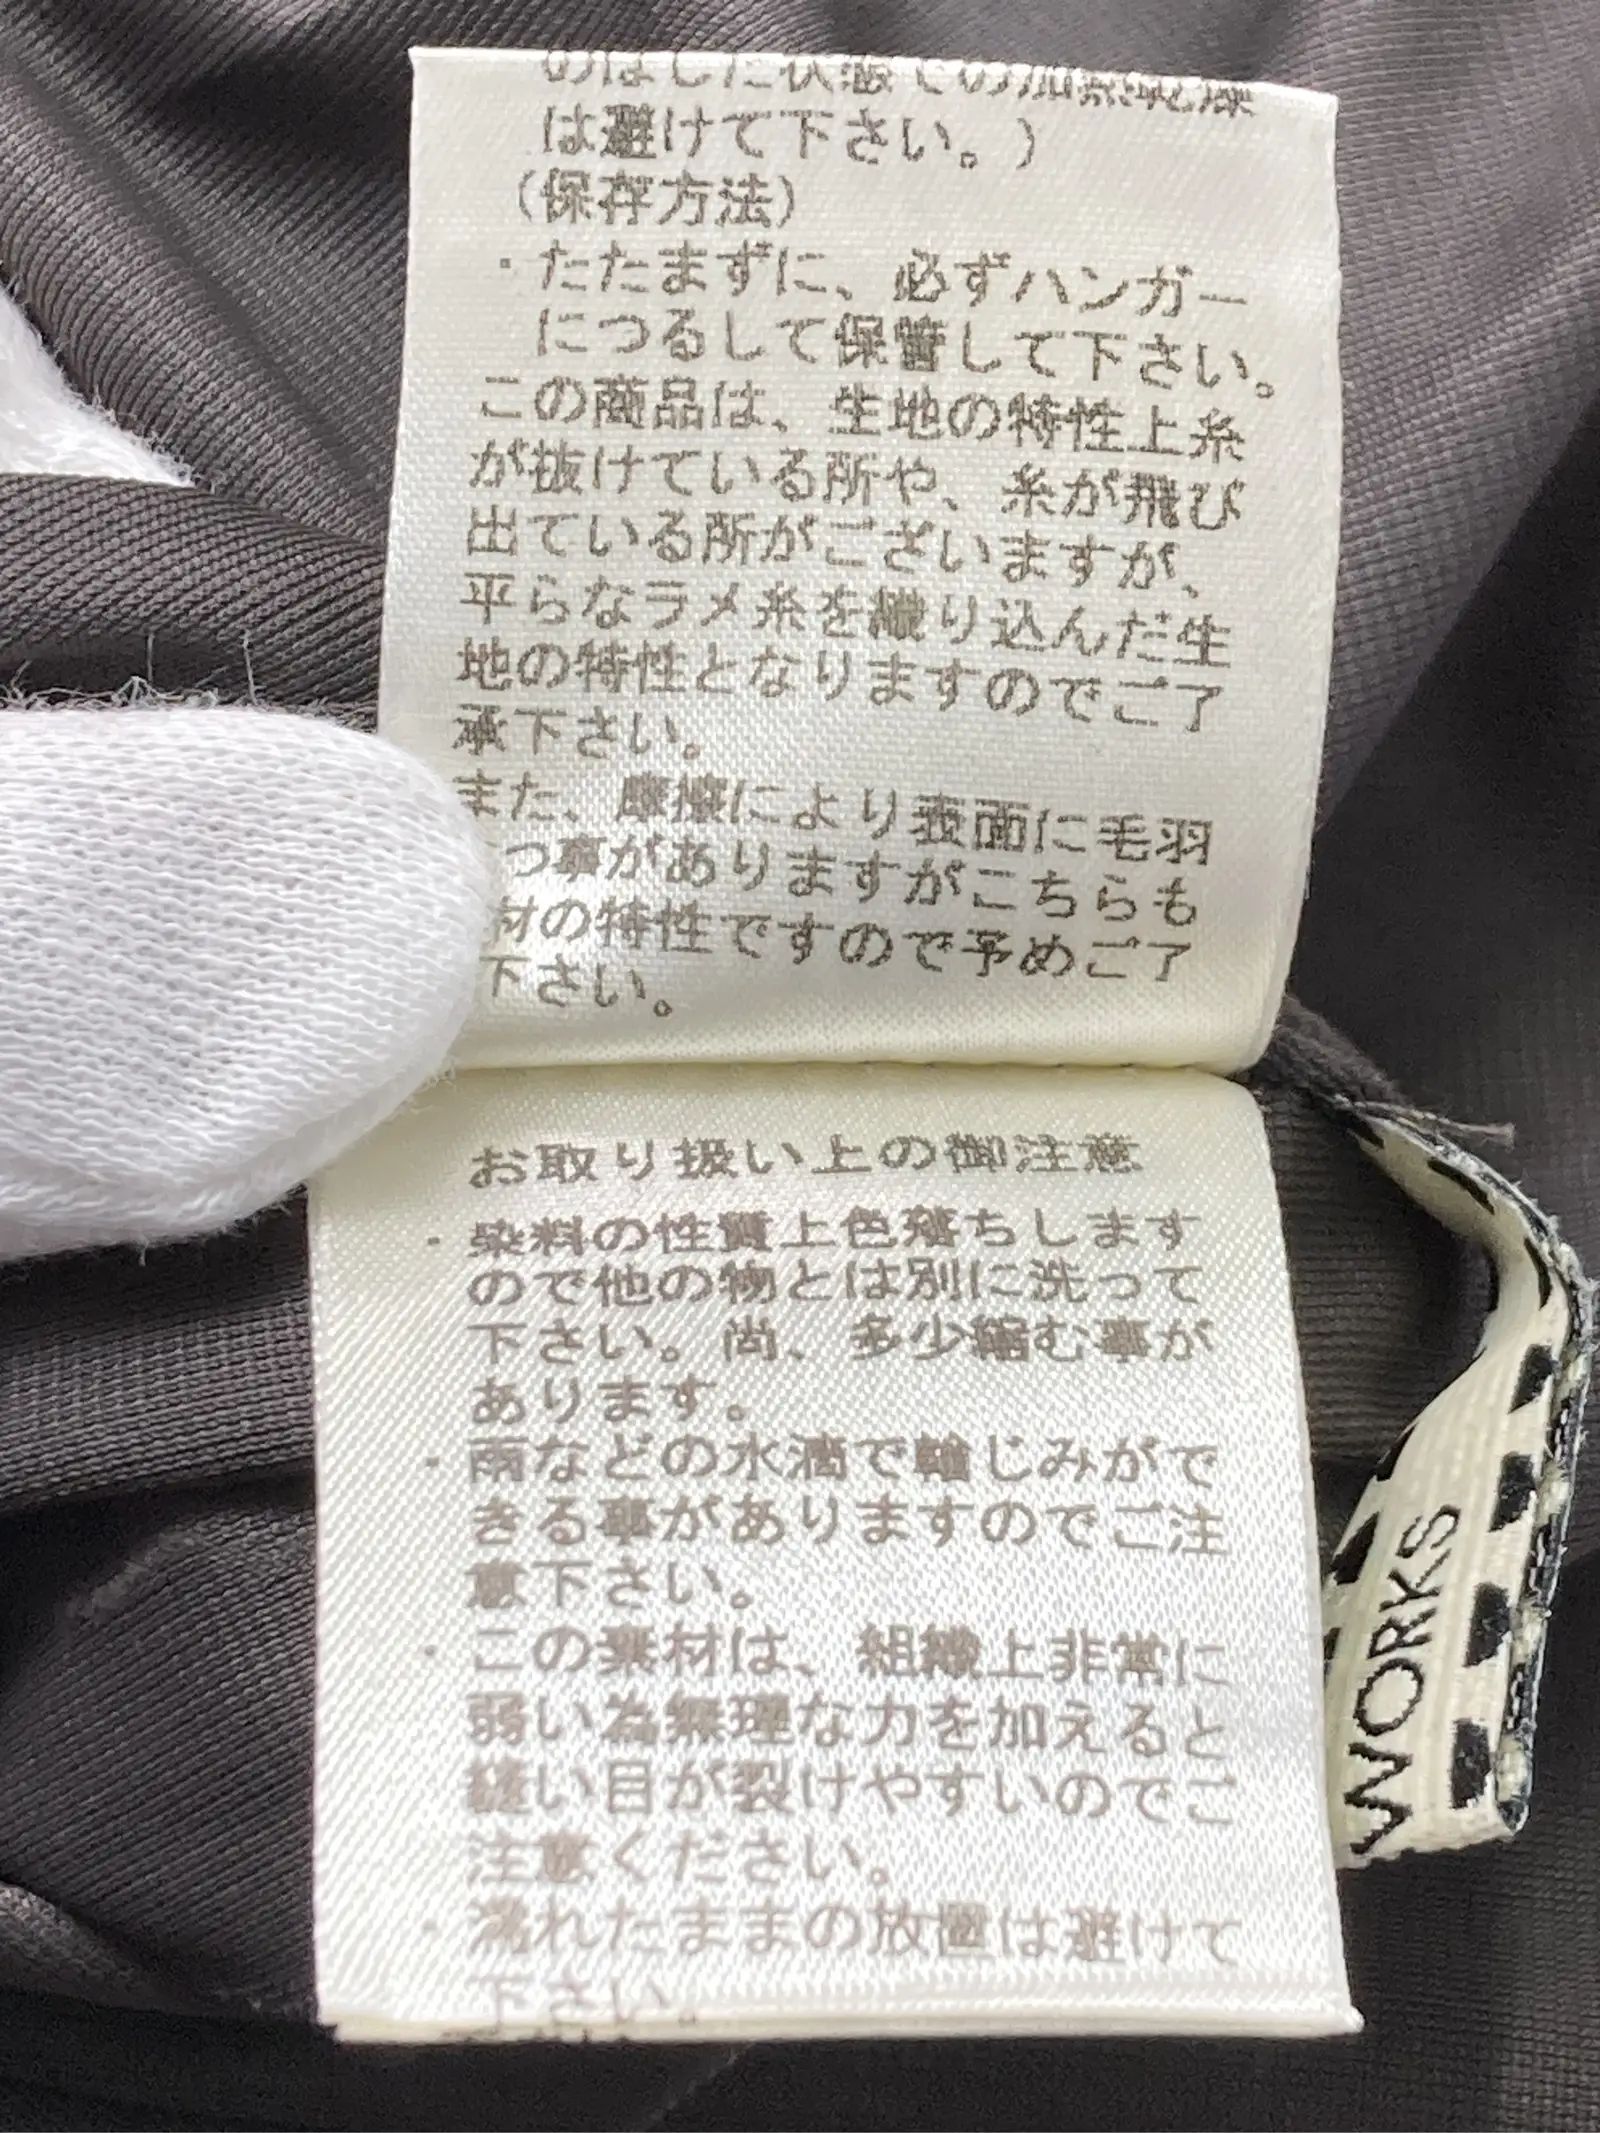 のばした状態での加熱乾燥
は避けて下さい。）
（保存方法）
・たたまずに、必ずハンガー
につるして保管して下さい。
この商品は、生地の特性上糸
が抜けている所や、糸が飛び
出ている所がございますが、
平らなラメ糸を織り込んだ生
地の特性となりますのでご了
承下さい。
また、摩擦により表面に毛羽
つ事がありますがこちらも
材の特性ですので予めご了
下さい。
お取り扱い上の御注意
・染料の性質上色落ちします
ので他の物とは別に洗って
下さい。尚、多少縮む事が
あります。
・雨などの水滴で輪じみがで
きる事がありますのでご注
意下さい。
・この素材は、組織上非常に
弱い為無理な力を加えると
縫い目が裂けやすいのでご
注意ください。
・濡れたままの放置は避けて
下さい。
WORKS